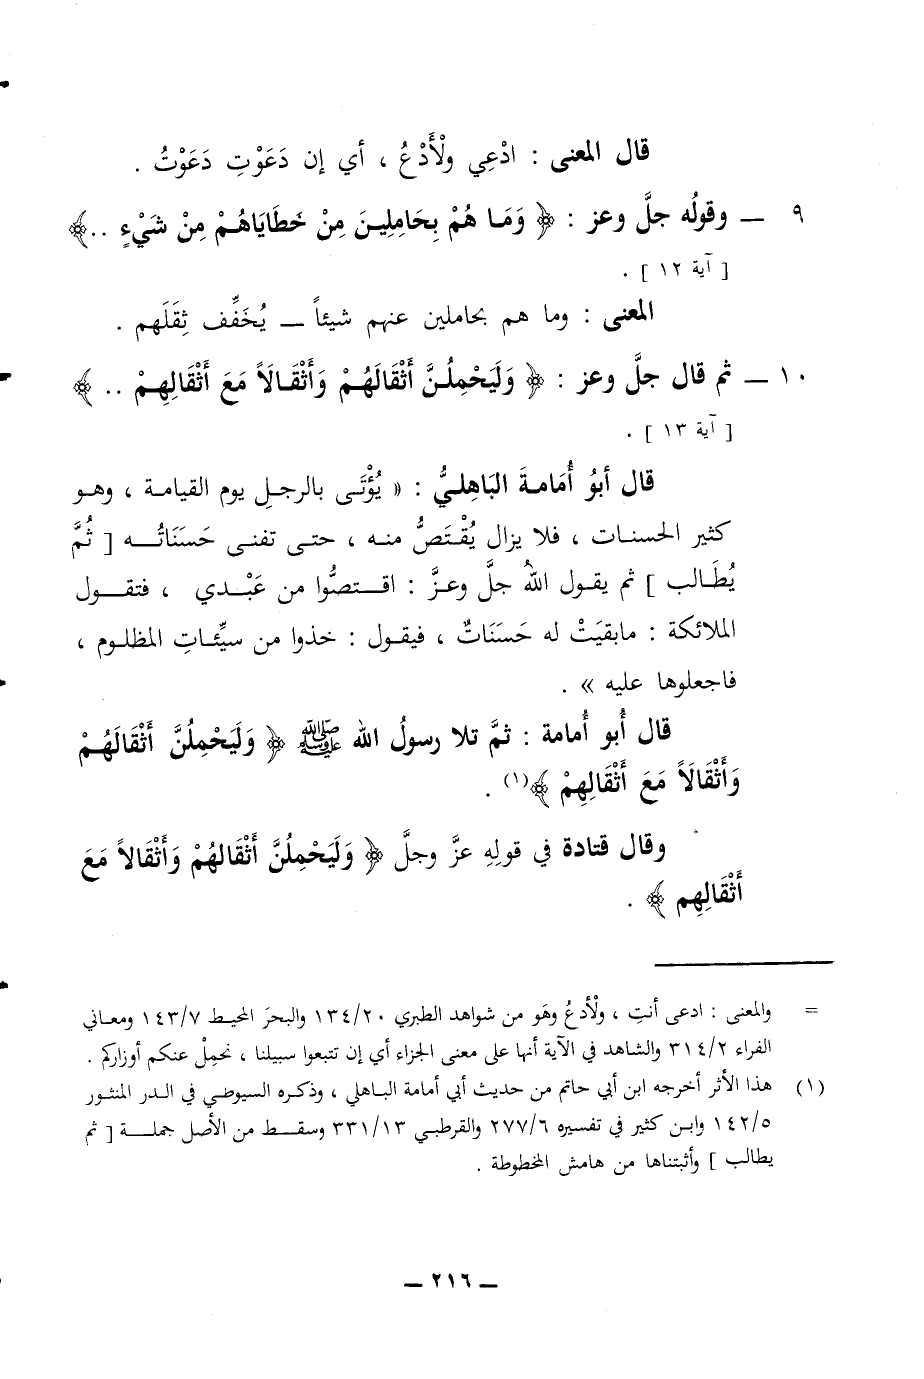 قال المعنى : ادْعِي ولْأَدْعُ ، أي إن دَعَوْتِ دَعَوْتُ .
٩ ــ وقولُه جلَّ وعز : ﴿ وَمَا هُمْ بِحَامِلِينَ مِنْ خَطَايَاهُمْ مِنْ شَيْءٍ .. ﴾
[ آية ١٢ ] .
المعنى : وما هم بحاملين عنهم شيئاً ــ يُخَفِّف ثِقَلَهم .
١٠ ــ ثم قال جلَّ وعز : ﴿ وَلَيَحْمِلُنَّ أَثْقَالَهُمْ وَأَثْقَالَاً مَعَ أَثْقَالِهِمْ .. ﴾
[ آية ١٣ ] .
قال أبوُ أُمَامةَ البَاهِليُّ : « يُؤْتَى بالرجلِ يوم القيامة ، وهو
كثير الحسنات ، فلا يزال يُقْتَصُّ منه ، حتى تفنى حَسَنَاتُه [ ثُمَّ
يُطَالب ] ثم يقول اللهُ جلَّ وعزَّ : اقتصُّوا من عَبْدي ، فتقول
الملائكة : مابقيَتْ له حَسَنَاتٌ ، فيقول : خذوا من سيِّئاتِ المظلوم ،
فاجعلوها عليه » .
قال أُبو أُمامة : ثمَّ تلا رسولُ الله ﷺ ﴿ وَلَيَحْمِلُنَّ أَثْقَالَهُمْ
وَأَثْقَالَاً مَعَ أَثْقَالِهِمْ ﴾(١) .
وقال قتادة في قولِهِ عزَّ وجلَّ ﴿ وَلَيَحْمِلُنَّ أَثْقالهُمْ وَأَثْقالاً مَعَ
أَثْقَالِهِم ﴾ .
= والمعنى : ادعى أنتِ ، ولْأدعُ وهَو من شواهد الطبري ١٣٤/٢٠ والبحرَ المحيط ١٤٣/٧ ومعاني
الفراء ٣١٤/٢ والشاهد في الآية أنها على معنى الجزاء أي إن تتبعوا سبيلنا ، نحمِلْ عنكم أوزاركم .
(١) هذا الأثر أخرجه ابن أبي حاتم من حديث أبي أمامة الباهلي ، وذكره السيوطي في الدر المنثور
١٤٢/٥ وابن كثير في تفسيره ٢٧٧/٦ والقرطبي ٣٣١/١٣ وسقط من الأصل جملة [ ثم
يطالب ] وأثبتناها من هامش المخطوطة .
ــ ٢١٦ ــ